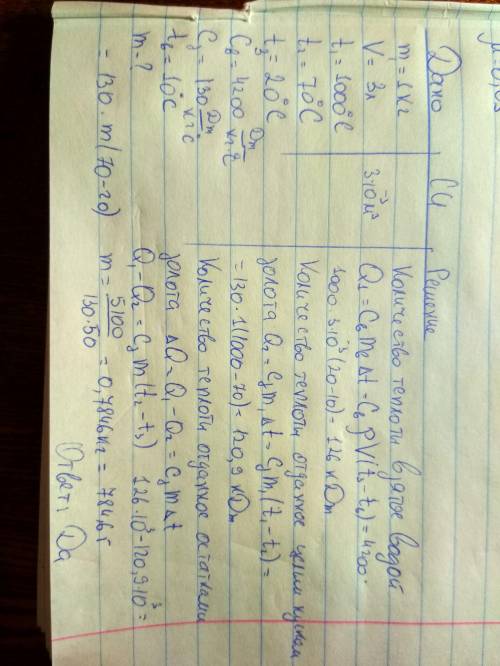 Дано
m₁ = 1 кг
V = 3л
t₁ = 1000°C
t₂ = 70°C
t₃ = 20°C
Cв = 4200 Дж/кг·°C
Cз = 130 Дж/кг°C
tв = 10°C
m - ?
СИ
3·10⁻³ м³
Решение
Количество теплоты взятое водой
Q₁ = Cв mв Δt = Cв ρ V (t₃ - tв) = 4200·
1000·3·10⁻³ (20-10) = 126 кДж
Количество теплоты отданное целым куском
золота Q₂ = Cз m₁ Δt = Cз m₁ (t₁ - t₂) =
= 130·1(1000-70) = 120,9 кДж
Количество теплоты отданное остатками
золота ΔQ = Q₁ - Q₂ = Cз m Δt
Q₁ - Q₂ = Cз m (t₂ - t₃) 126·10³ - 120,9·10³ =
= 130·m(70-20) m = 5100/130·50 = 0,7846кг = 784,6г
Ответ: Да